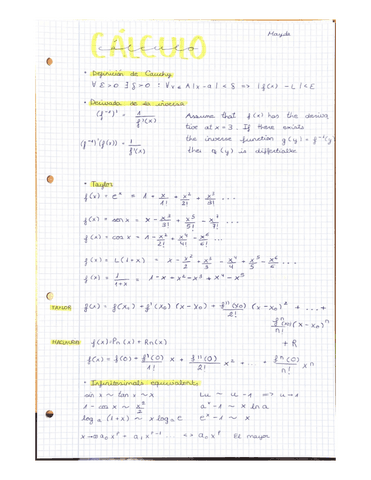 Mayda
CÁLCULO
cálculo
• Definición de Cauchy
∀ε>0 ∃δ>0 : ∀x ∈ A |x-a| < δ => |f(x) - L| < ε
• Derivada de la inversa
(f⁻¹)' = 1/f'(x)
(f⁻¹)'(f(x)) = 1/f'(x)
Assume that f(x) has the deriva
tive at x = 3. If there exists
the inverse function g(y) = f⁻¹(y)
then g(y) is differentiable
• Taylor
f(x) = eˣ = 1 + x/1! + x²/2! + x³/3! ...
f(x) = sen x = x - x³/3! + x⁵/5! - x⁷/7! ...
f(x) = cos x = 1 - x²/2! + x⁴/4! - x⁶/6! ...
f(x) = L(1+x) = x - x²/2 + x³/3 - x⁴/4 + x⁵/5 - x⁶/6 ...
f(x) = 1/1+x = 1 - x + x² - x³ + x⁴ - x⁵
TAYLOR f(x) = f(x₀) + f'(x₀) (x - x₀) + f''(x₀)/2! (x - x₀)² + ... +
fⁿ(x₀)/n! (x - x₀)ⁿ
+ R
MACLAURIN f(x) = Pn(x) + Rn(x)
f(x) = f(0) + f'(0)/1! x + f''(0)/2! x² + ... + fⁿ(0)/n! xⁿ
• Infinitesimals equivalents
sin x ~ tan x ~ x
1 - cos x ~ x²/2
logₐ (1+x) ~ x logₐ e
x→∞ a₀xᵖ + a₁xᵖ⁻¹ ... => a₀xᵖ El mayor
Lu ~ u - 1 => u→1
aˣ - 1 ~ x ln a
eˣ - 1 ~ x